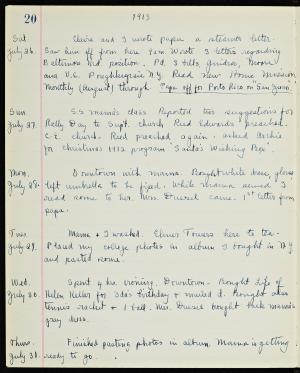 20
1913
Sat. Claire and I wrote papa a steamer letter.
July 26. Saw him off from here 9 a.m. Wrote 3 letters regarding
Baltimore Md. position. Pd. 3 bills,
and V.C. Poughkeepsie N.Y. Read new Home Mission
Monthly (August) through. Papa off for Porto Rico on "San Juan".
Sun. S.S. mama's class. Reported two suggestions for
July 27. Rally Day to Supt. Church Reed Edwards preached.
C.E. Church. Reed preached again. Asked
for Christmas 1912 program "Santa's Wishing Pipe".
Mon. Downtown with mama. Bought white shoes, gloves
July 28. left umbrella to be fixed. While mama sewed I
read some to her. Mrs. came. 1st letter from
papa.
Tues. Mama & I washed. Elmer Towers here to tea.
July 29. Placed my college photos in album I bought in N.Y.
and pasted some.
Wed. Spent a.m. ironing. Downtown. Bought Life of
July 30. Helen Keller for Ida's birthday & mailed it. Bought
tennis racket & 1 ball. Mrs. bought back mama's
gray dress.
Thurs. Finished pasting photos in album. Mama is getting
July 31. ready to go.